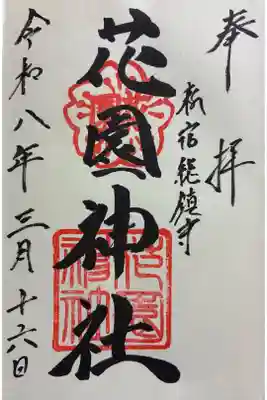 奉拝
新宿総鎮守
花園神社
令和八年三月十六日
花園神社